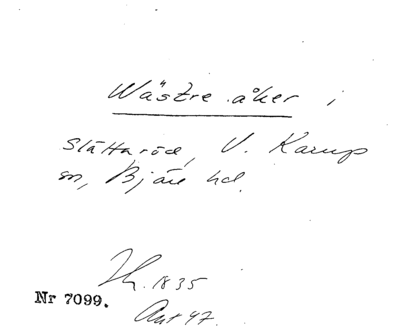 Wästre åker i
Slättaröd, V. Karup
sn, Bjäre hd.
Th. 1835
Nr 7099.
Ant 47.